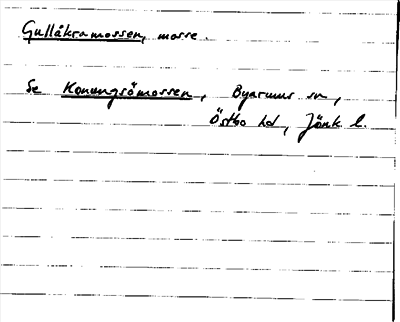 Gullåkramossen, mosse.
Se Konungsömossen, Byarums sn,
Östbo hd, Jönk l.